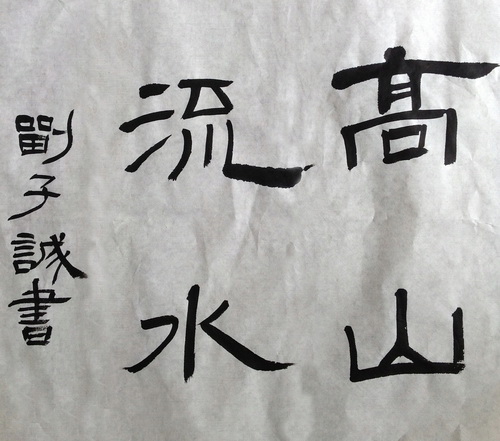 髙山
流水
劉子誠書